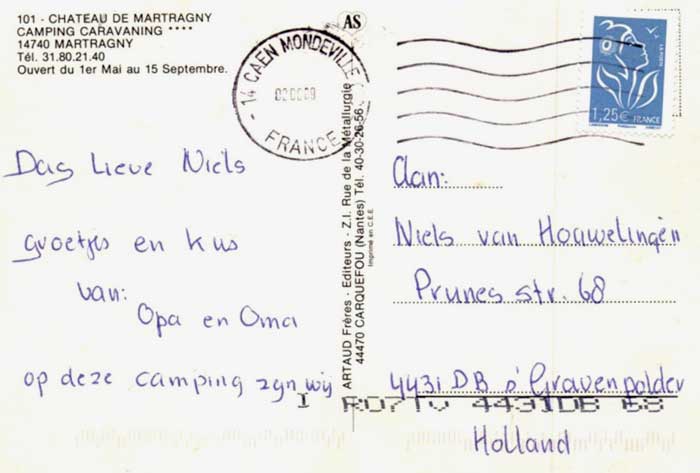 101 - CHATEAU DE MARTRAGNY
CAMPING CARAVANING ****
14740 MARTRAGNY
Tél. 31.80.21.40
Ouvert du 1er Mai au 15 Septembre.
AS
- 14 CAEN MONDEVILLE
FRANCE
1,25€ FRANCE
Dag lieve Niels
groetjes en kus
van:
Opa en Oma
op deze camping zyn wij
ARTAUD Frères - Editeurs - Z.I. Rue de la Métallurgie
44470 CARQUEFOU (Nantes) Tél. 40-30-26-56
Imprimé en C.E.E.
Aan:
Niels van Houwelingen
Prunes str. 68
4431 DB s'Gravenpolder
4431DB 68
Holland